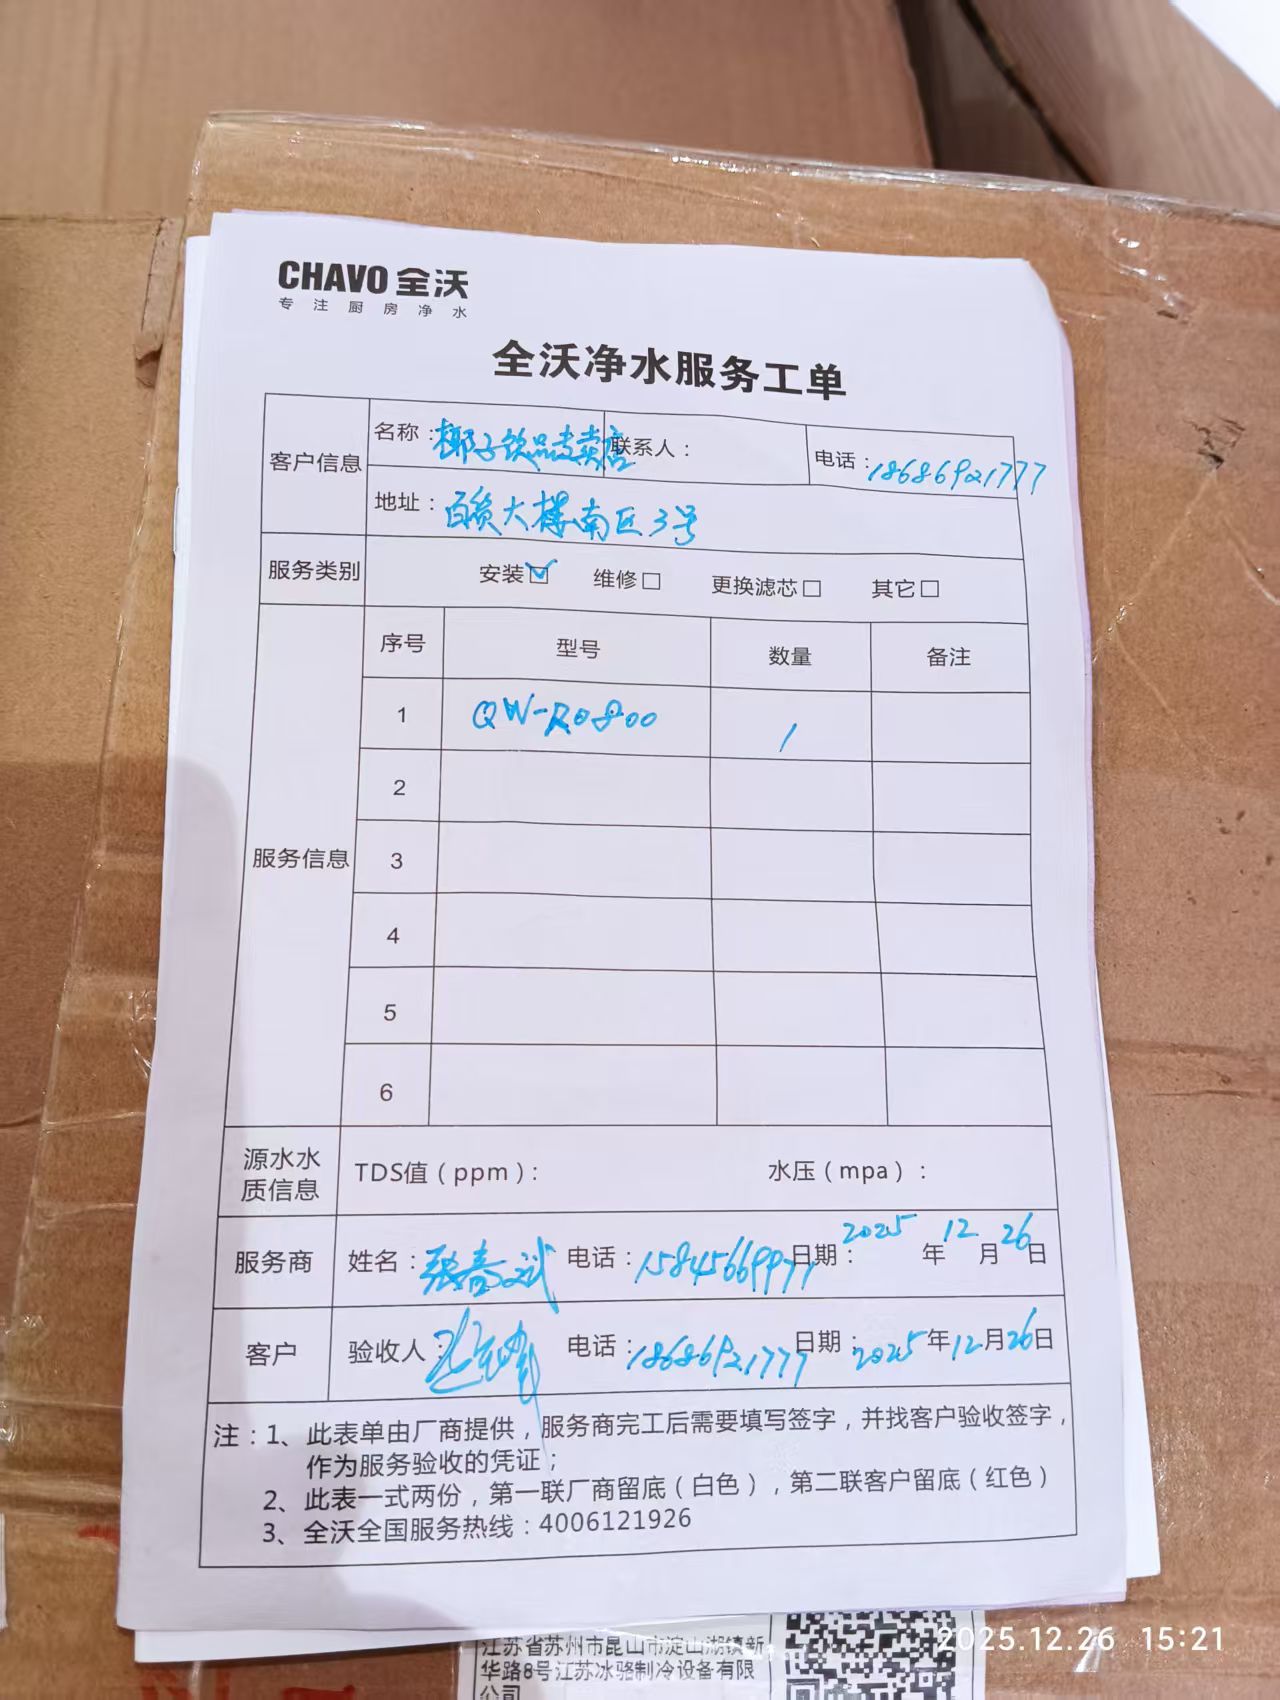 CHAVO 全沃
专注厨房净水
全沃净水服务工单
客户信息
名称：椰子饮品专卖店 联系人： 电话：18686921777
地址：百货大楼南区3号
服务类别 安装☑ 维修□ 更换滤芯□ 其它□
服务信息
序号 型号 数量 备注
1 QW-RO800 1
2
3
4
5
6
源水水质信息 TDS值（ppm）： 水压（mpa）：
服务商 姓名：张春斌 电话：15845669977 日期：2025年12月26日
客户 验收人： 电话：18686921777 日期：2025年12月26日
注：1、此表单由厂商提供，服务商完工后需要填写签字，并找客户验收签字，
作为服务验收的凭证；
2、此表一式两份，第一联厂商留底（白色），第二联客户留底（红色）
3、全沃全国服务热线：4006121926
江苏省苏州市昆山市淀山湖镇新
华路8号江苏冰骆制冷设备有限
公司
2025.12.26 15:21